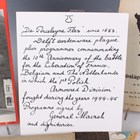 De Porceleyne Fles since 1653.
Delft earthenware plaque
plus programmes commemorating
the 10th Anniversary of the battle
for the Liberation of France,
Belgium and The Netherlands
in which the 1st Polish
Armoured Division
fought during the years 1944-45
Programme signed by
General Maczek
and dignitaries.